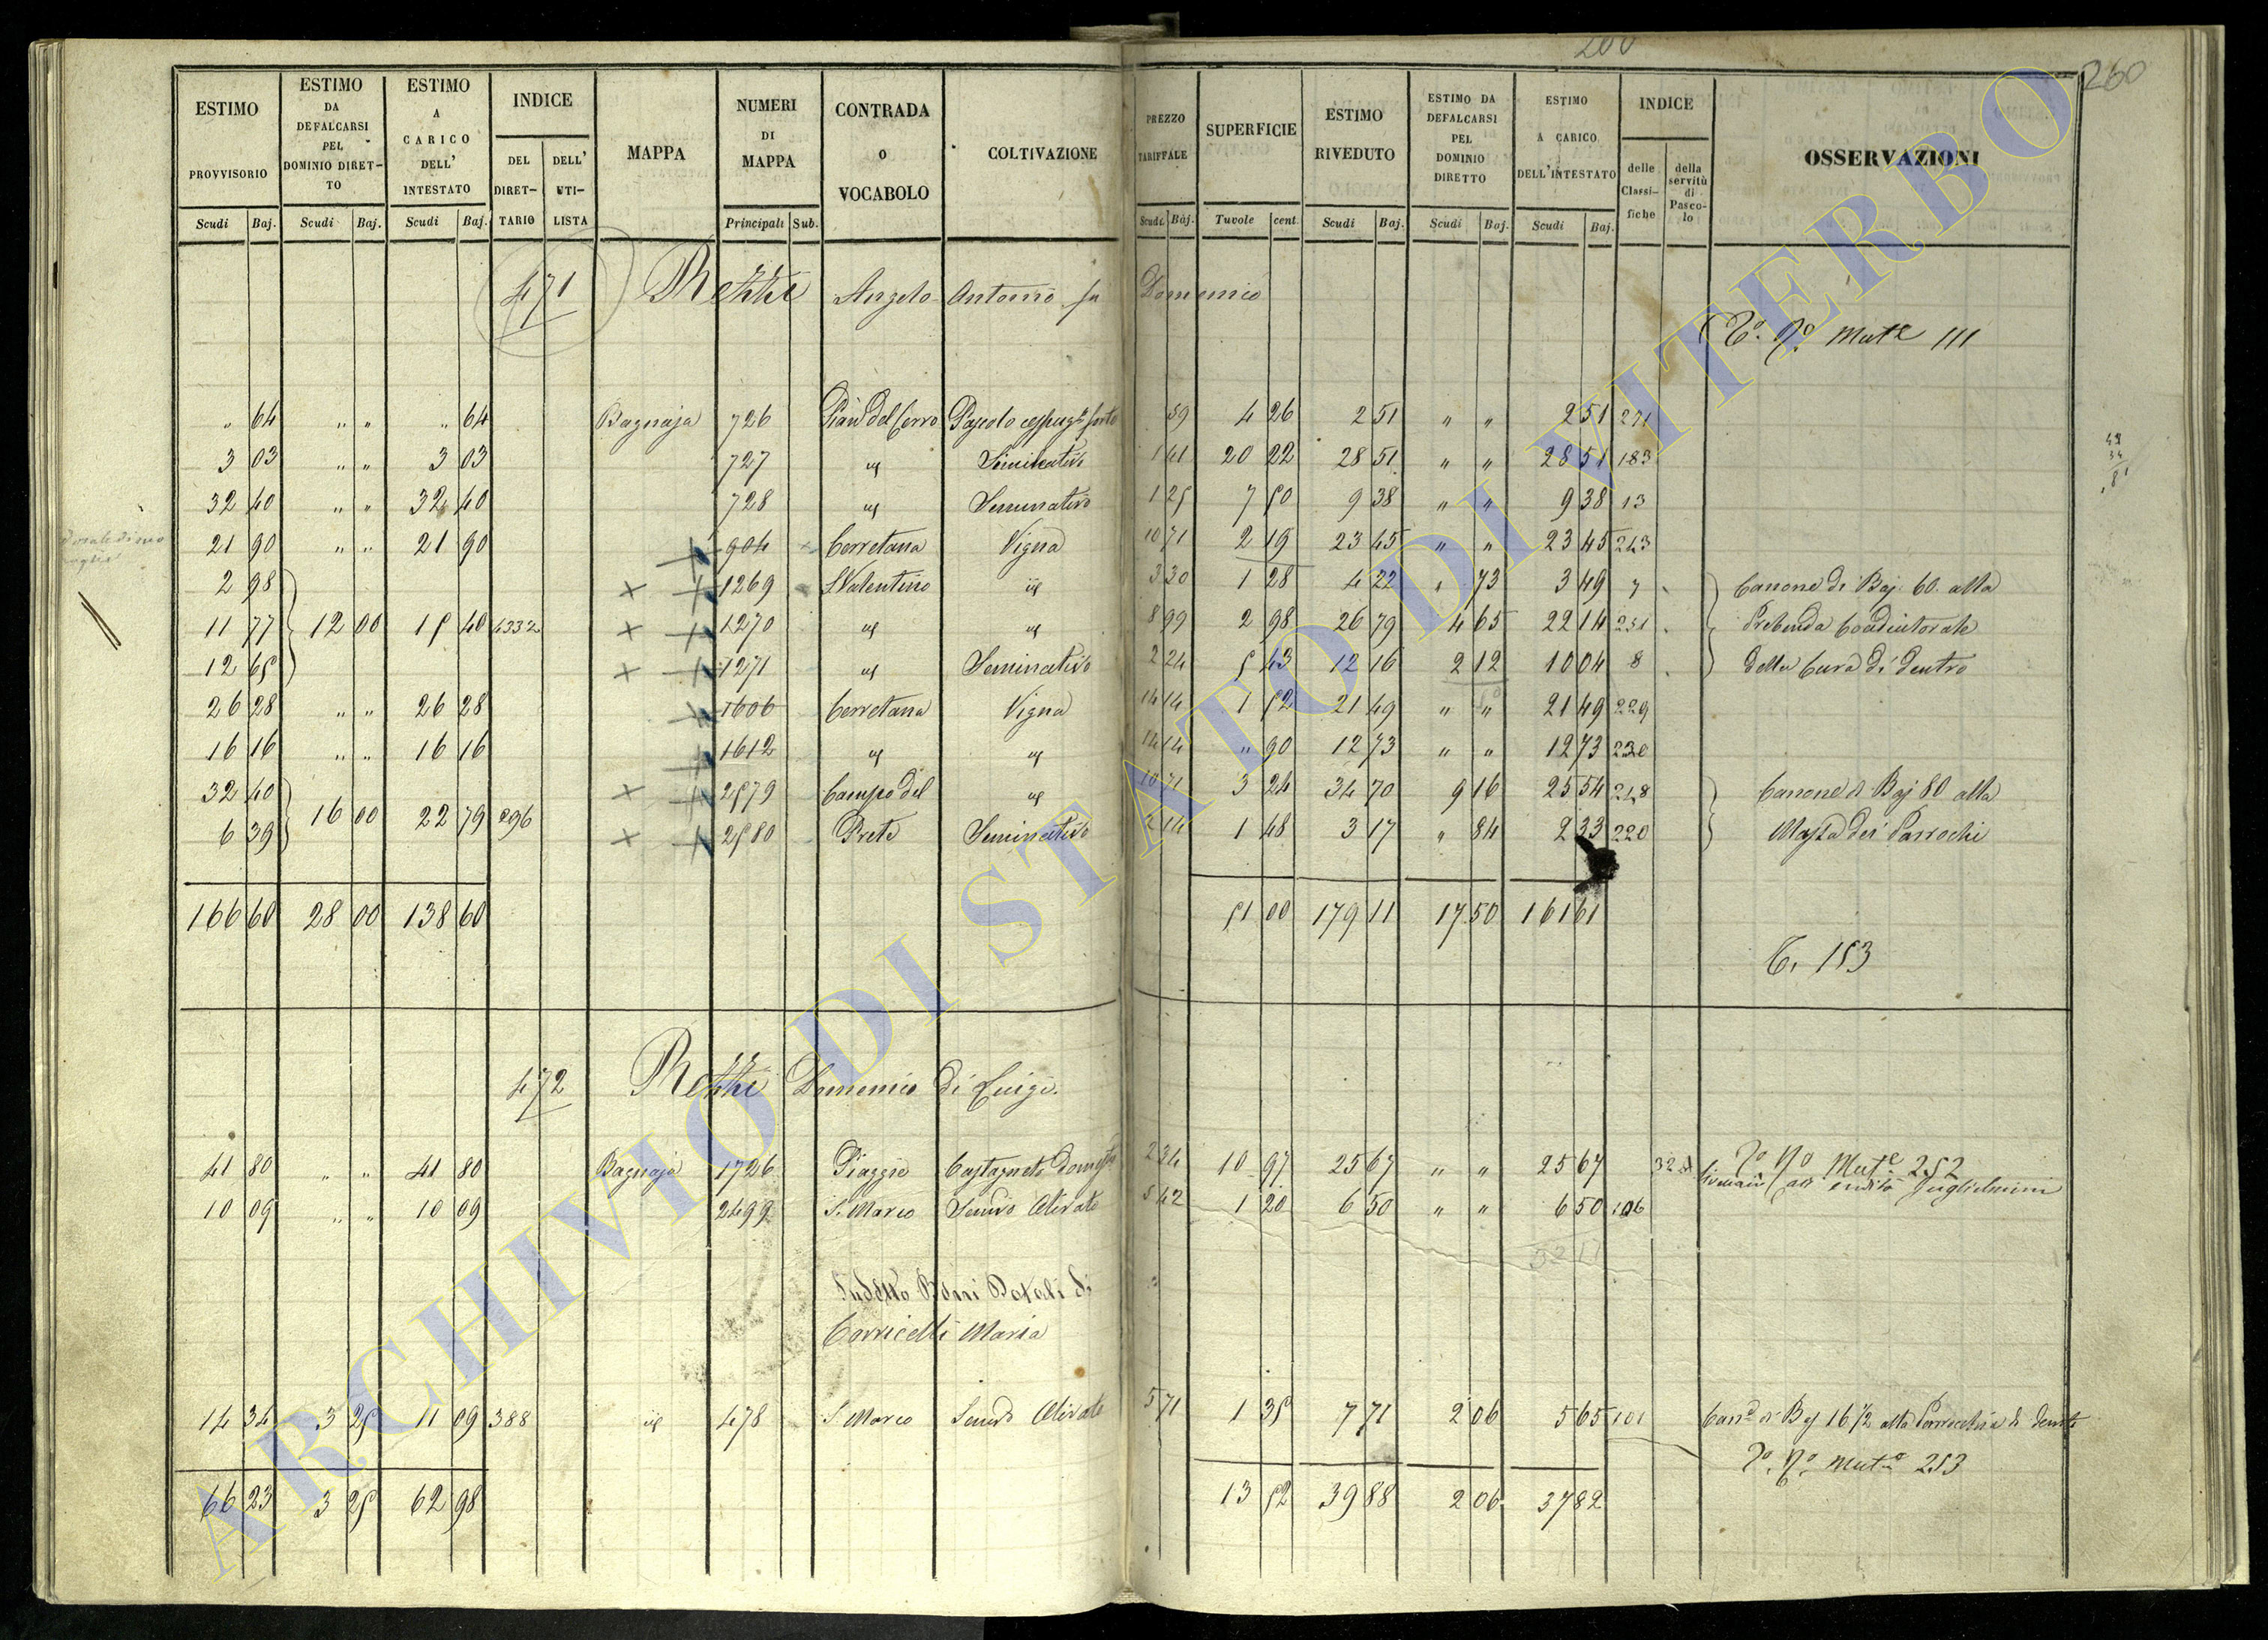 200
260
ESTIMO PROVVISORIO | ESTIMO DA DEFALCARSI PEL DOMINIO DIRETTO | ESTIMO A CARICO DELL' INTESTATO | INDICE DEL DIRETTARIO | DELL' UTILISTA | MAPPA | NUMERI DI MAPPA | CONTRADA O VOCABOLO | COLTIVAZIONE | PREZZO TARIFFALE | SUPERFICIE | ESTIMO RIVEDUTO | ESTIMO DA DEFALCARSI PEL DOMINIO DIRETTO | ESTIMO A CARICO DELL'INTESTATO | INDICE delle Classifiche | della servitù di Pascolo | OSSERVAZIONI
Scudi | Baj. | Scudi | Baj. | Scudi | Baj. | Principali | Sub. | Scudi | Baj. | Tavole | cent. | Scudi | Baj. | Scudi | Baj. | Scudi | Baj.
471 Rezzi Angelo Antonio fu Domenico
Mute 111
" 64 | " " | " 64 | Bagnaja | 726 | Pian del Cerro | Pascolo | 59 | 4 26 | 2 51 | " " | 2 51 | 271
3 03 | " " | 3 03 | 727 | id | Seminativo | 1 41 | 20 22 | 28 51 | " " | 28 51 | 183
32 40 | " " | 32 40 | 728 | id | Seminativo | 1 25 | 7 50 | 9 38 | " " | 9 38 | 13
21 90 | " " | 21 90 | 904 | Cerretana | Vigna | 10 71 | 2 19 | 23 45 | " " | 23 45 | 243
2 98 | 1269 | S Valentino | id | 3 30 | 1 28 | 4 22 | " 73 | 3 49 | 7 | Canone di Baj. 60. alla
11 77 | 12 00 | 15 40 | 4332 | 1270 | id | id | 8 99 | 2 98 | 26 79 | 4 65 | 22 14 | 231 | Prebenda Coadiutorale
12 65 | 1271 | id | Seminativo | 2 24 | 5 43 | 12 16 | 2 12 | 10 04 | 8 | della Cura di dentro
26 28 | " " | 26 28 | 1606 | Cerretana | Vigna | 14 14 | 1 52 | 21 49 | " " | 21 49 | 229
16 16 | " " | 16 16 | 1612 | id | id | 14 14 | " 90 | 12 73 | " " | 12 73 | 230
32 40 | 16 00 | 22 79 | 296 | 2579 | Campo del | id | 10 71 | 3 24 | 34 70 | 9 16 | 25 54 | 218 | Canone di Baj 80 alla
6 39 | 2580 | Prete | Seminativo | 2 14 | 1 48 | 3 17 | " 84 | 2 33 | 220 | Massa dei Parrochi
166 60 | 28 00 | 138 60 | 51 00 | 179 11 | 17 50 | 161 61
C. 153
472 Rezzi Domenico di Luigi.
41 80 | " " | 41 80 | Bagnaja | 1726 | Piaggie | Castagneto Domestico | 2 34 | 10 97 | 25 67 | " " | 25 67 | 324 | Mute 252
10 09 | " " | 10 09 | 2499 | S. Marco | Semvo Olivato | 5 42 | 1 20 | 6 50 | " " | 6 50 | 106
32 17
Sudetto Beni Dotali di
Corricelli Maria
14 34 | 3 25 | 11 09 | 388 | id | 478 | S. Marco | Semvo Olivato | 5 71 | 1 35 | 7 71 | 2 06 | 5 65 | 101 | Cane di Baj 16 1/2 alla Parrocchia di dentro
Mute 253
66 23 | 3 25 | 62 98 | 13 52 | 39 88 | 2 06 | 37 82
ARCHIVIO DI STATO DI VITERBO